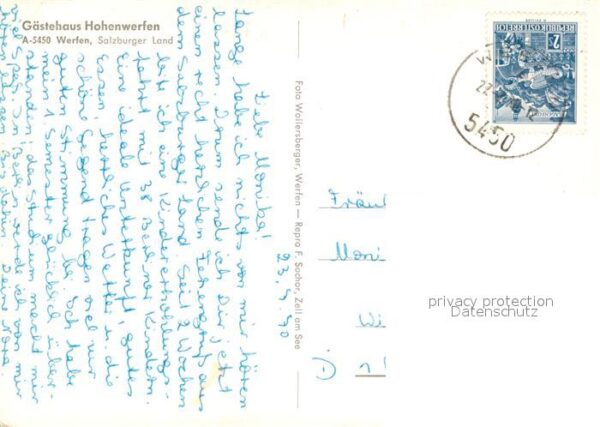 Gästehaus Hohenwerfen
A-5450 Werfen, Salzburger Land
23.5.70
Liebe Monika!
Lange habe ich nichts von mir hören
lassen. Darum sende ich Dir jetzt
einen recht herzlichen Feriengruß aus
dem Salzburger Land. Seit 2 Wochen
leite ich eine Kindererholungs-
fahrt mit 38 Berliner Kindern.
Eine ideale Unterkunft, gutes
Essen, herrliches Wetter u. die
schöne Gegend tragen viel zur
guten Stimmung bei. Ich habe
mein 1. Semester glücklich über-
standen, das Studium macht mir
viel Spaß. In Berlin werde ich von mir
hören lassen. Bis dahin Deine
Foto Wallersberger, Werfen — Repro F. Sochor, Zell am See
REPUBLIK ÖSTERREICH
2
5450
Fräul
Moni
Wi
D 1
privacy protection
Datenschutz